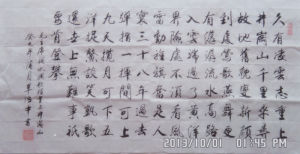 久有凌雲志重上
井岡山千里來尋
故地舊貌變新顏
到處鶯歌燕舞更
有潺潺流水高路
入雲端過了黃洋
界險處不須看風
雷動旌旗奮是人
寰三十八年過去
彈指一揮間可上
九天攬月可下五
洋捉鱉談笑凱歌
還世上無難事祇
要肯登攀
2013/10/01 01:45 PM